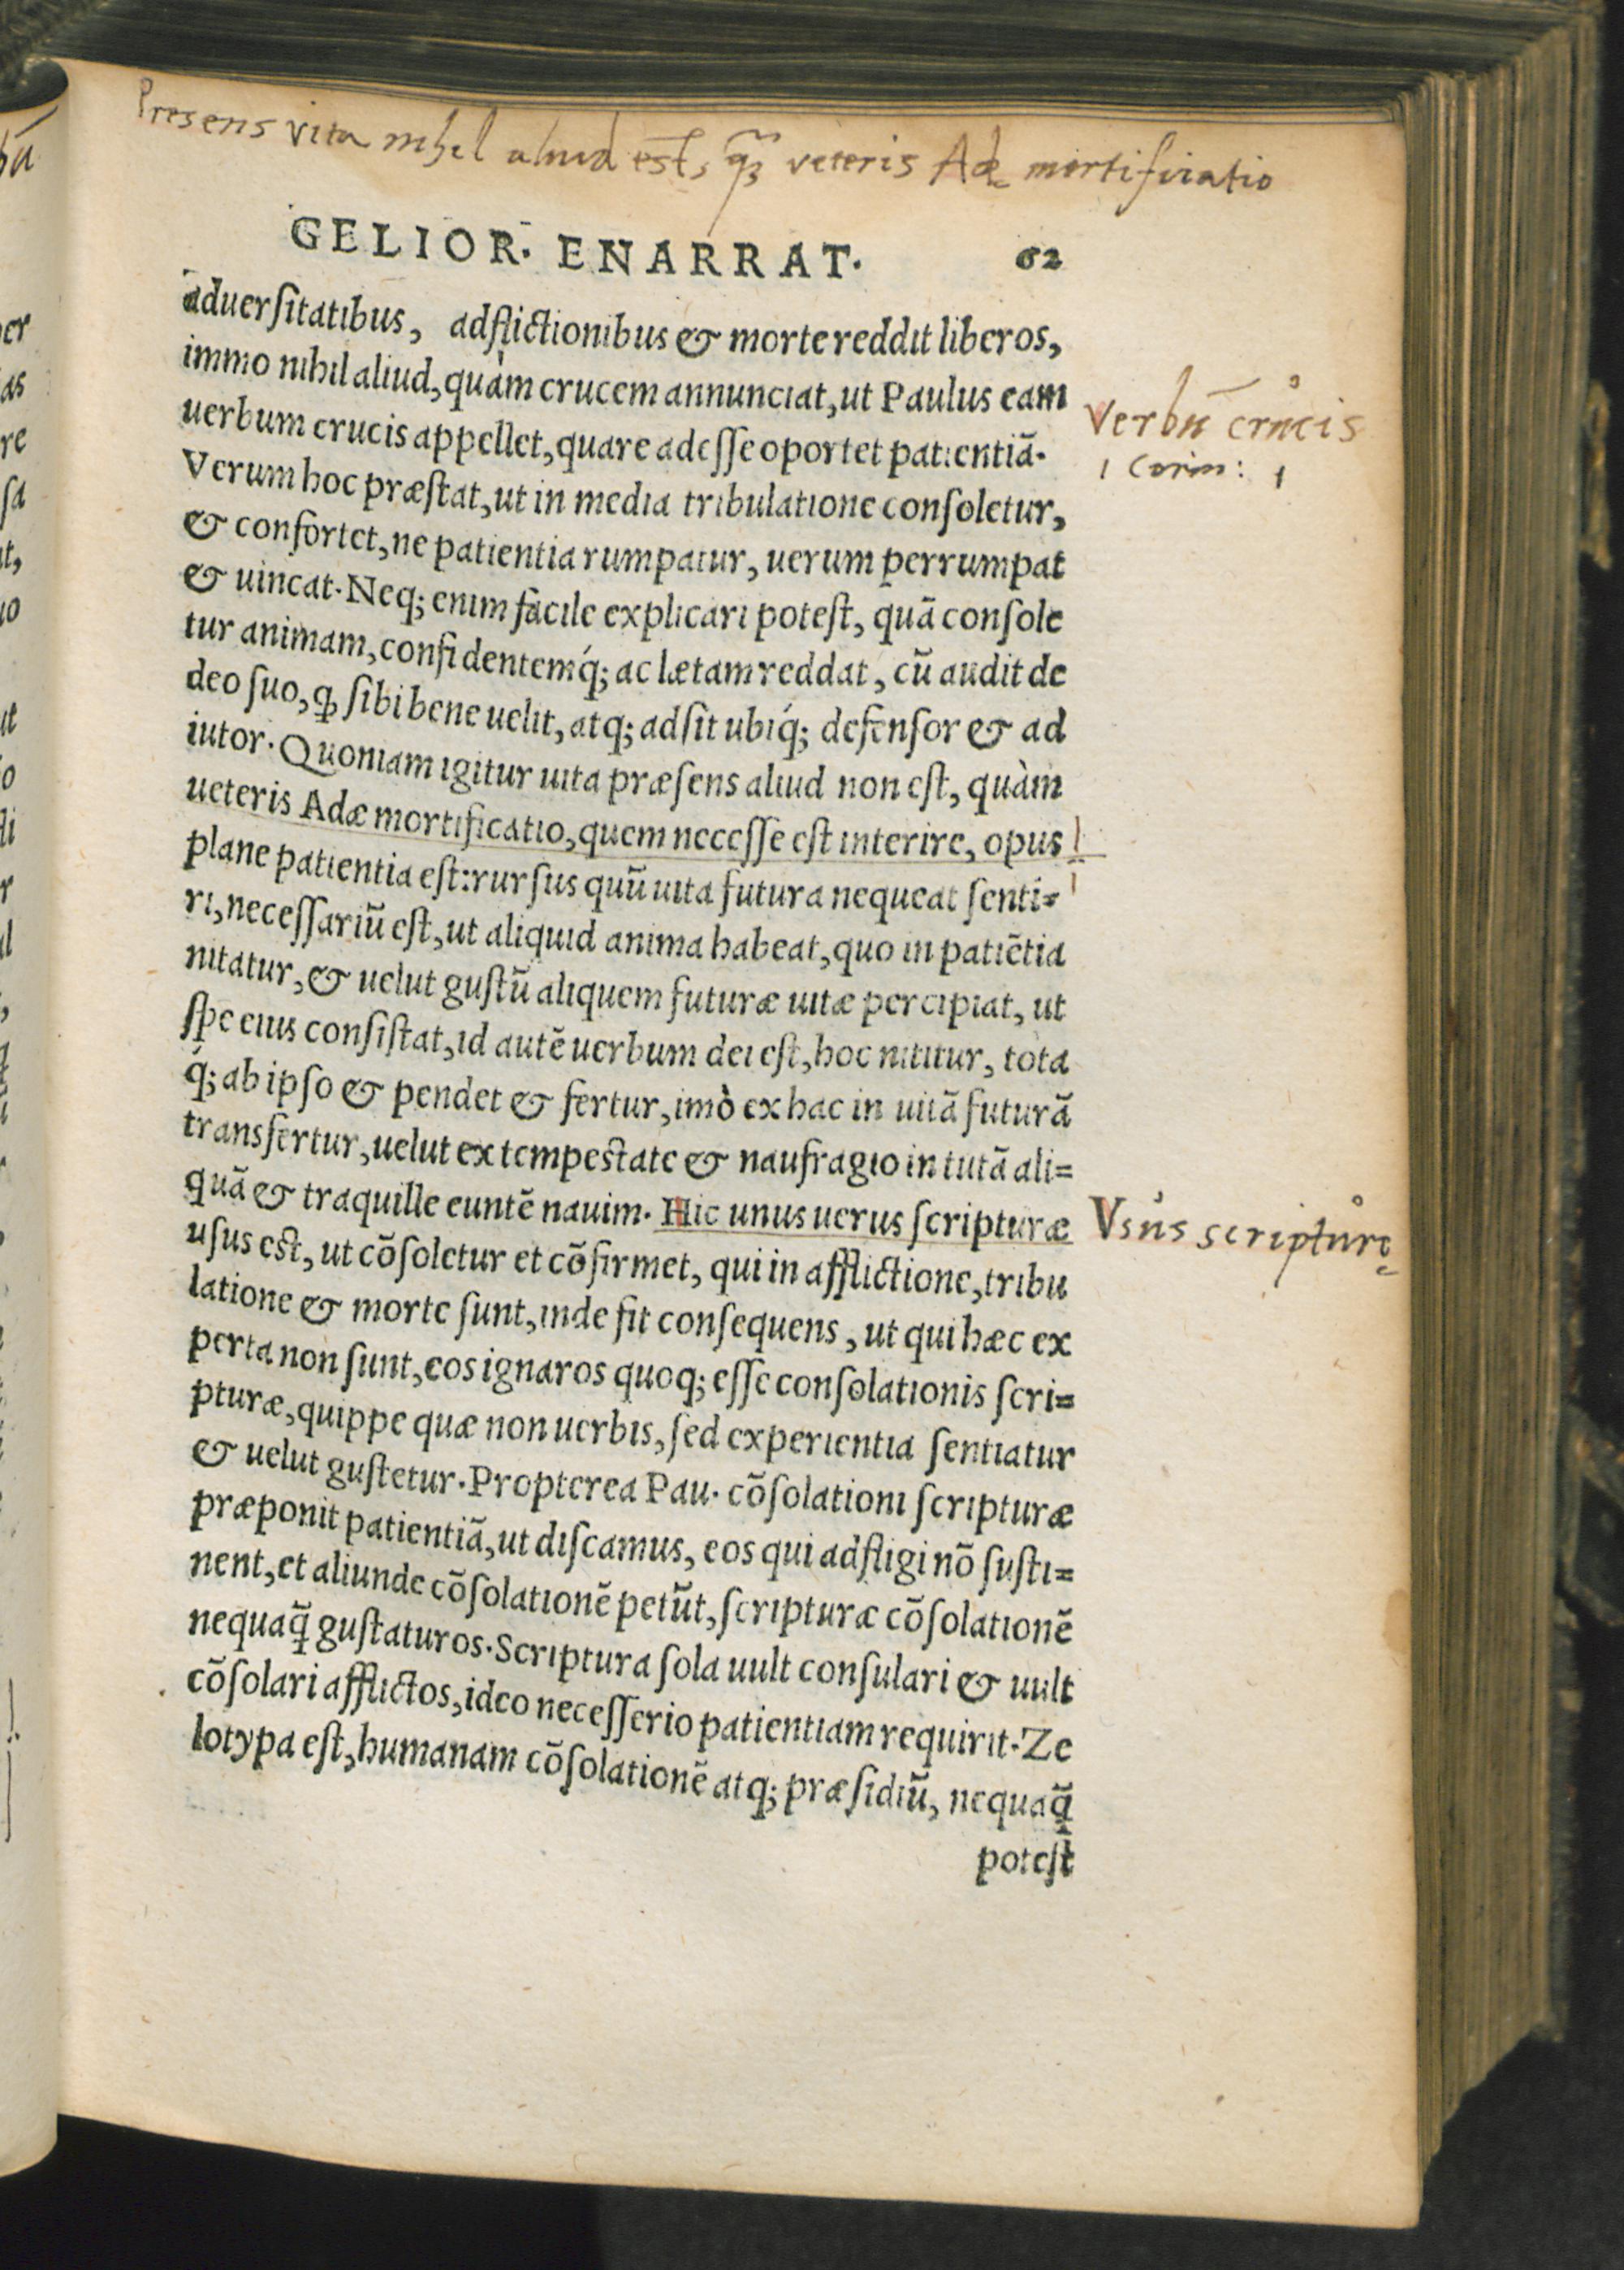 Presens vita nihil aliud est, q̃ȝ veteris Adę mortificatio
GELIOR. ENARRAT. 62
aduersitatibus, adflictionibus & morte reddit liberos,
immo nihil aliud, quàm crucem annunciat, ut Paulus eam
uerbum crucis appellet, quare adesse oportet patientiã.
Verbũ crucis
1 Corin: 1
Verum hoc præstat, ut in media tribulatione consoletur,
& confortet, ne patientia rumpatur, uerum perrumpat
& uincat. Neq; enim facile explicari potest, quã console
tur animam, confidentemq́; ac lætam reddat, cũ audit de
deo suo, ꝙ sibi bene uelit, atq; adsit ubiq́; defensor & ad
iutor. Quoniam igitur uita præsens aliud non est, quàm
ueteris Adæ mortificatio, quem necesse est interire, opus
plane patientia est: rursus quũ uita futura nequeat senti=
ri, necessariũ est, ut aliquid anima habeat, quo in patiẽtia
nitatur, & uelut gustũ aliquem futuræ uitæ percipiat, ut
spe eius consistat, id autẽ uerbum dei est, hoc nititur, tota
q́; ab ipso & pendet & fertur, imò ex hac in uitã futurã
transfertur, uelut ex tempestate & naufragio in tutã ali=
quã & traquille euntẽ nauim. Hic unus uerus scripturæ
Vsus scripturę
usus est, ut cõsoletur et cõfirmet, qui in afflictione, tribu
latione & morte sunt, inde fit consequens, ut qui hæc ex
perta non sunt, eos ignaros quoq; esse consolationis scri=
pturæ, quippe quæ non uerbis, sed experientia sentiatur
& uelut gustetur. Propterea Pau. cõsolationi scripturæ
præponit patientiã, ut discamus, eos qui adfligi nõ susti=
nent, et aliunde cõsolationẽ petũt, scripturæ cõsolationẽ
nequaq̃ gustaturos. Scriptura sola uult consulari & uult
cõsolari afflictos, ideo necesserio patientiam requirit. Ze
lotypa est, humanam cõsolationẽ atq; præsidiũ, nequaq̃
potest